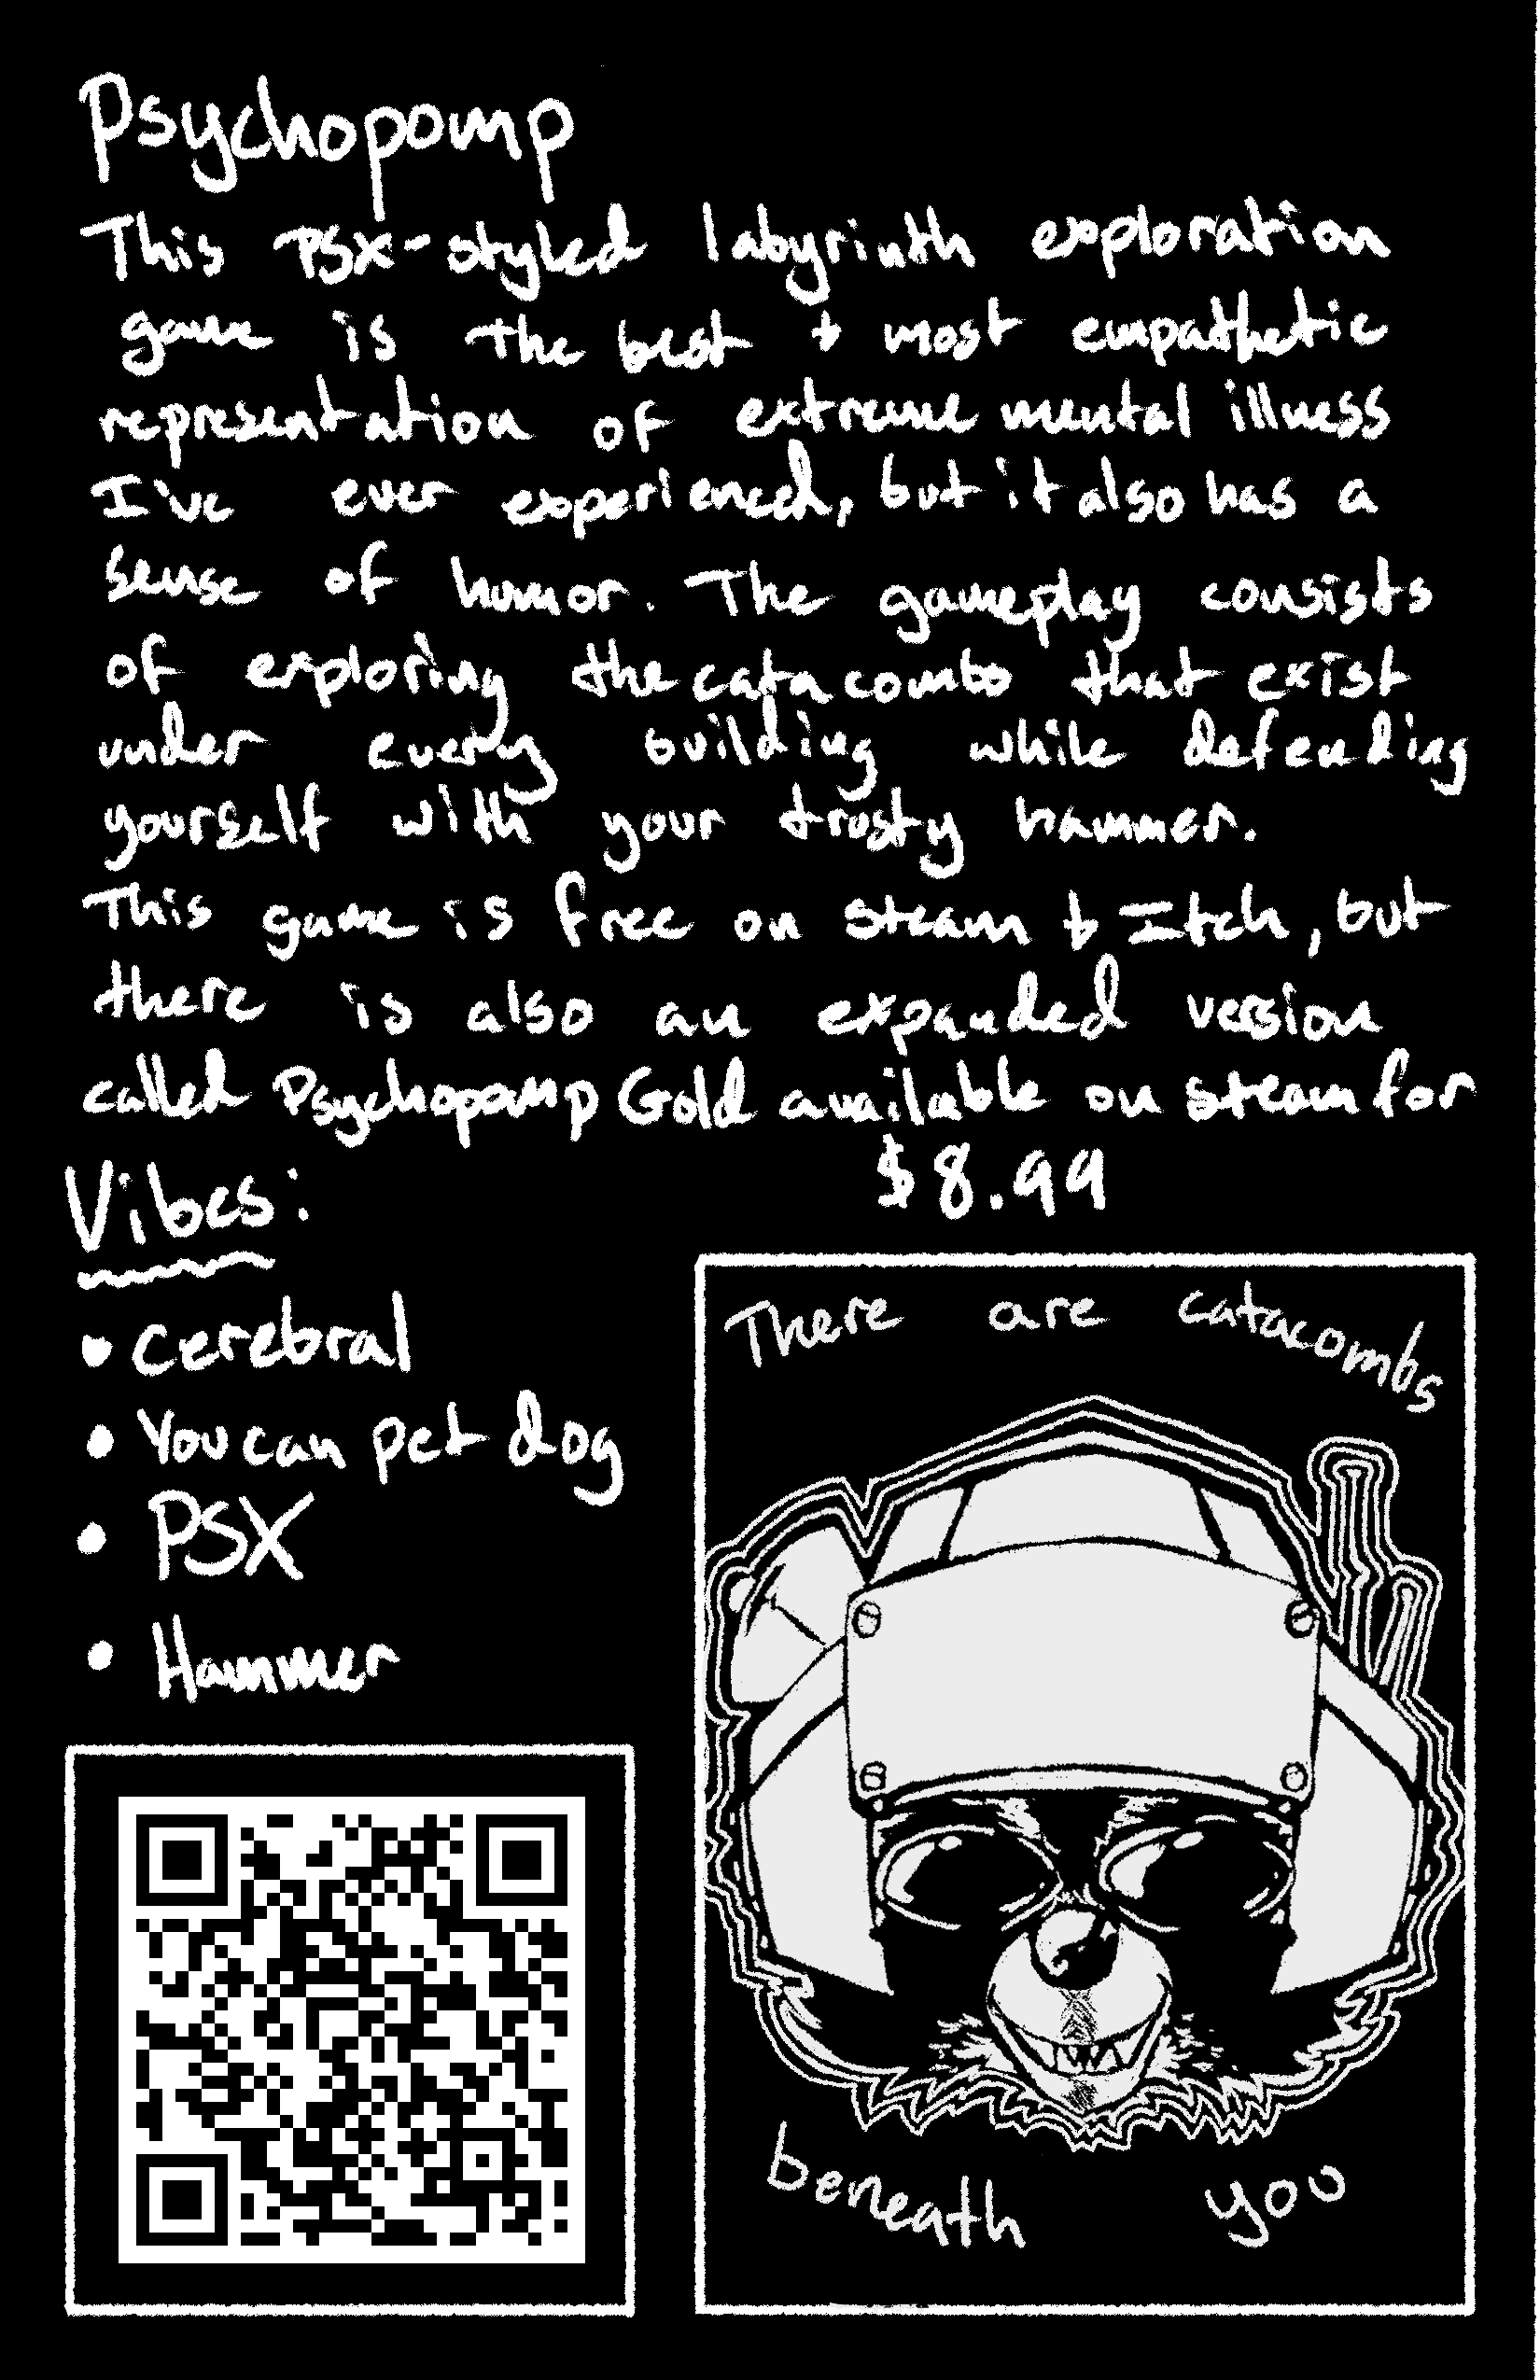 Psychopomp
This PSX-styled labyrinth exploration
game is the best & most empathetic
representation of extreme mental illness
I've ever experienced, but it also has a
sense of humor. The gameplay consists
of exploring the catacombs that exist
under every building while defending
yourself with your trusty hammer.
This game is free on steam & Itch, but
there is also an expanded version
called Psychopomp Gold available on steam for
$8.99
Vibes:
• Cerebral
• You can pet dog
• PSX
• Hammer
There are catacombs
beneath you